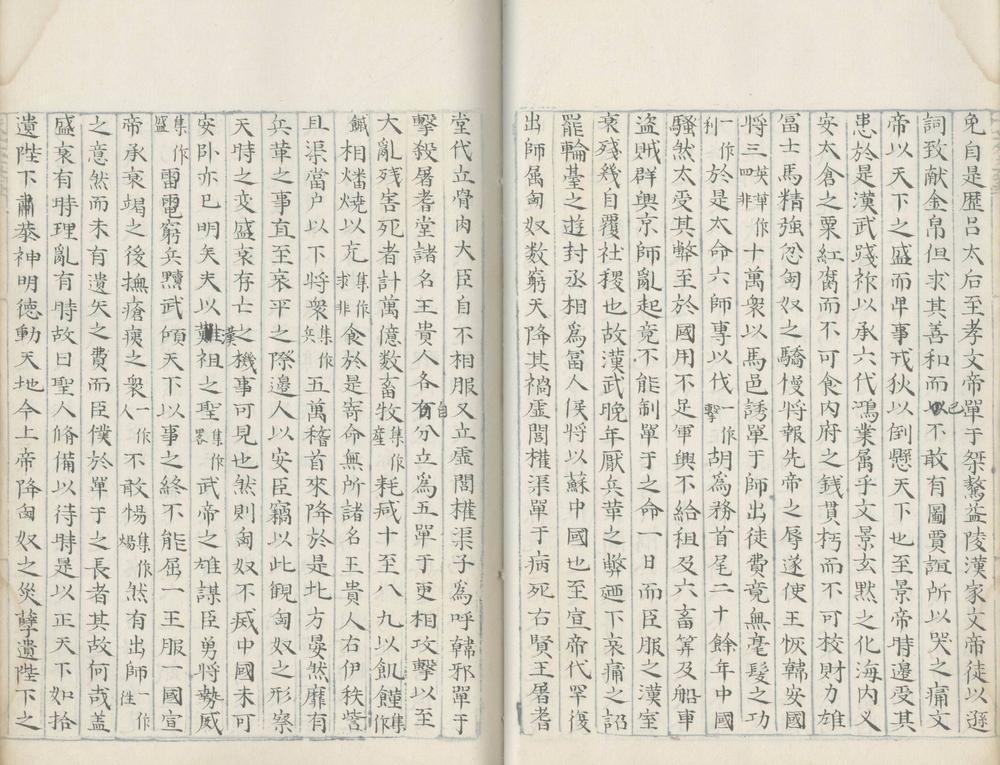 免自是歷吕太后至孝文帝單于桀驁益陵漢家文帝徒以遜
詞致献金帛但求其善和而已不敢有圖賈誼所以哭之痛文
帝以天下之盛而卑事戎狄以倒懸天下也至景帝時邊受其
患於是漢武踐祚以承六代鴻業属乎文景玄默之化海内乂
安太倉之粟紅腐而不可食内府之錢貫朽而不可校財力雄
冨士馬精強忿匈奴之驕慢將報先帝之辱遂使王恢韓安國
將三英華作四非十萬衆以馬邑誘單于師出徒費竟無毫髮之功
一作利於是太命六師專以伐一作擊胡為務首尾二十餘年中國
騷然大受其弊至於國用不足軍興不給租及六畜筭及船車
盗賊群興京師亂起竟不能制單于之命一日而臣服之漢室
衰殘幾自覆社稷也故漢武晚年厭兵革之弊廼下哀痛之詔
罷輪臺之遊封丞相為冨人侯將以蘇中國也至宣帝代罕復
出師属匈奴数窮天降其禍虚閭權渠單于病死右賢王屠耆
堂代立骨肉大臣自不相服又立虚閭權渠子為呼韓邪單于
擊殺屠耆堂諸名王貴人各自分立為五單于更相攻擊以至
大亂殘害死者計萬億数畜牧集作産耗减十至八九以飢饉集作
餓相燔燒以充集作求非食於是寄命無所諸名王貴人右伊秩訾
且渠當户以下將衆集作兵五萬稽首來降於是北方晏然靡有
兵革之事直至哀平之際邊人以安臣竊以此觀匈奴之形察
天時之变盛衰存亡之機事可見也然則匈奴不㓕中國未可
安卧亦已明矣夫以漢祖之聖集作畧武帝之雄謀臣勇將勢威
集作盛雷電窮兵黷武傾天下以事之終不能屈一王服一國宣
帝承衰竭之後撫瘡痍之衆一作人不敢惕集作煬然有出師一作徃
之意然而未有遺矢之費而臣僕於單于之長者其故何㢤盖
盛衰有時理亂有時故曰聖人脩備以待時是以正天下如拾
遺陛下肅㳟神明德動天地今上帝降匈奴之災孽遺陛下之